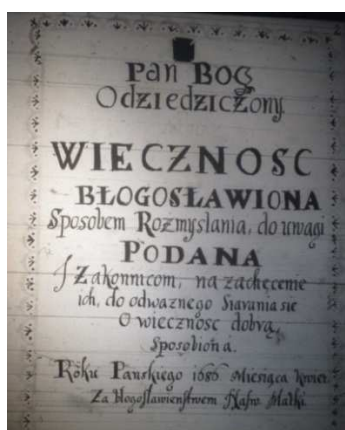 Pan BOG
Odziedziczony
WIECZNOSC
BŁOGOSŁAWIONA
Sposobem Rozmyslania, do uwagi
PODANA
J Zakonnicom, na zachęcenie
ich, do odwaznego starania sie
O wiecznosc dobrą,
sposobiona.
Roku Panskiego 1686 Miesiąca
Za błogosławienstwem Matki